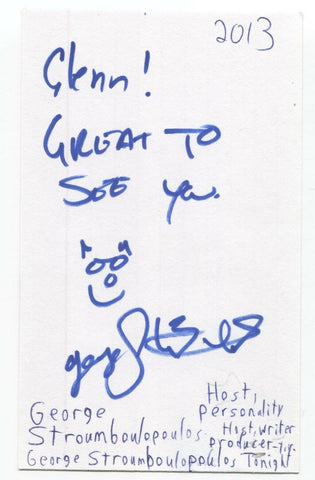 2013
Glenn!
GREAT TO
SEE you.
George
Stroumboulopoulos
Host,
Personality
Host, writer
producer - T.V.
George Stroumboulopoulos Tonight